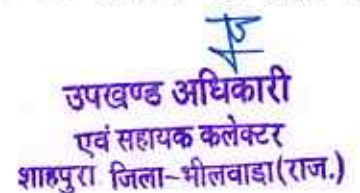 उपखण्ड अधिकारी
एवं सहायक कलेक्टर
शाहपुरा जिला-भीलवाडा(राज.)